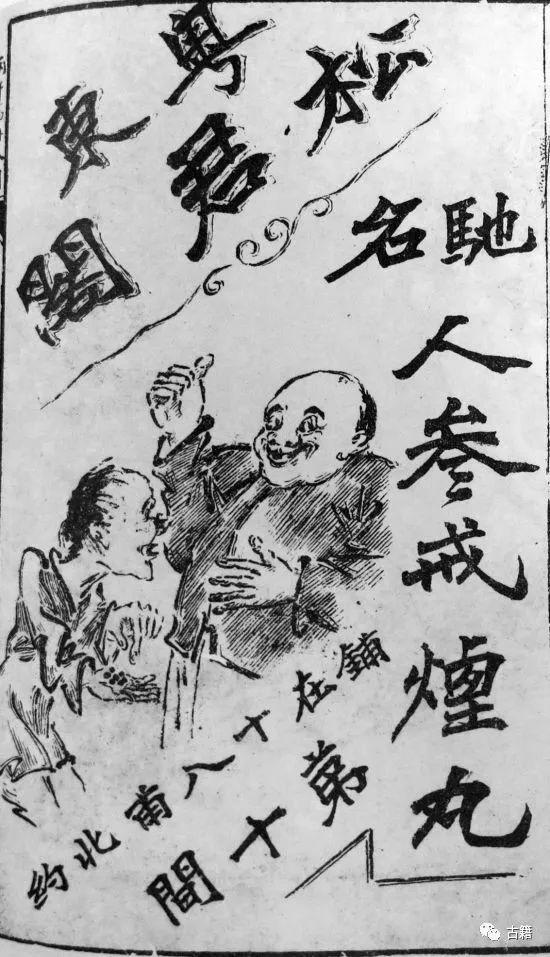 粵東
松君閣
馳名
人參戒煙丸
鋪在十八甫北約
第十間
古籍